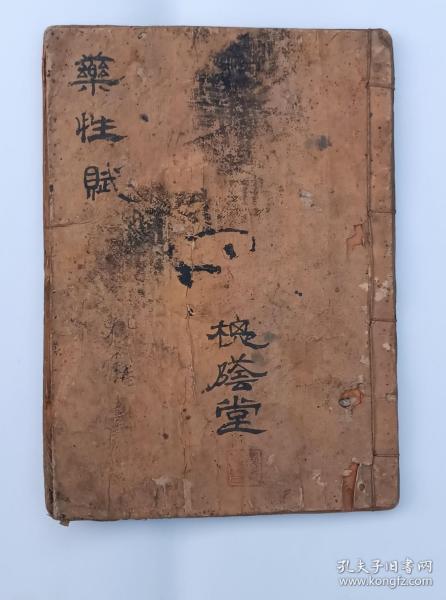 藥性賦
槐蔭堂
孔夫子旧书网
www.kongfz.com